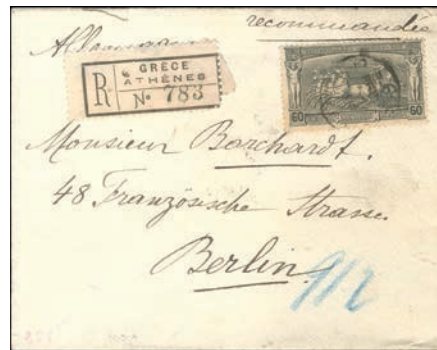 recommandée
Allemagne
R
GRÈCE
ATHÈNES
No 783
60
60
Monsieur Borchardt.
48 Französische Strasse.
Berlin.